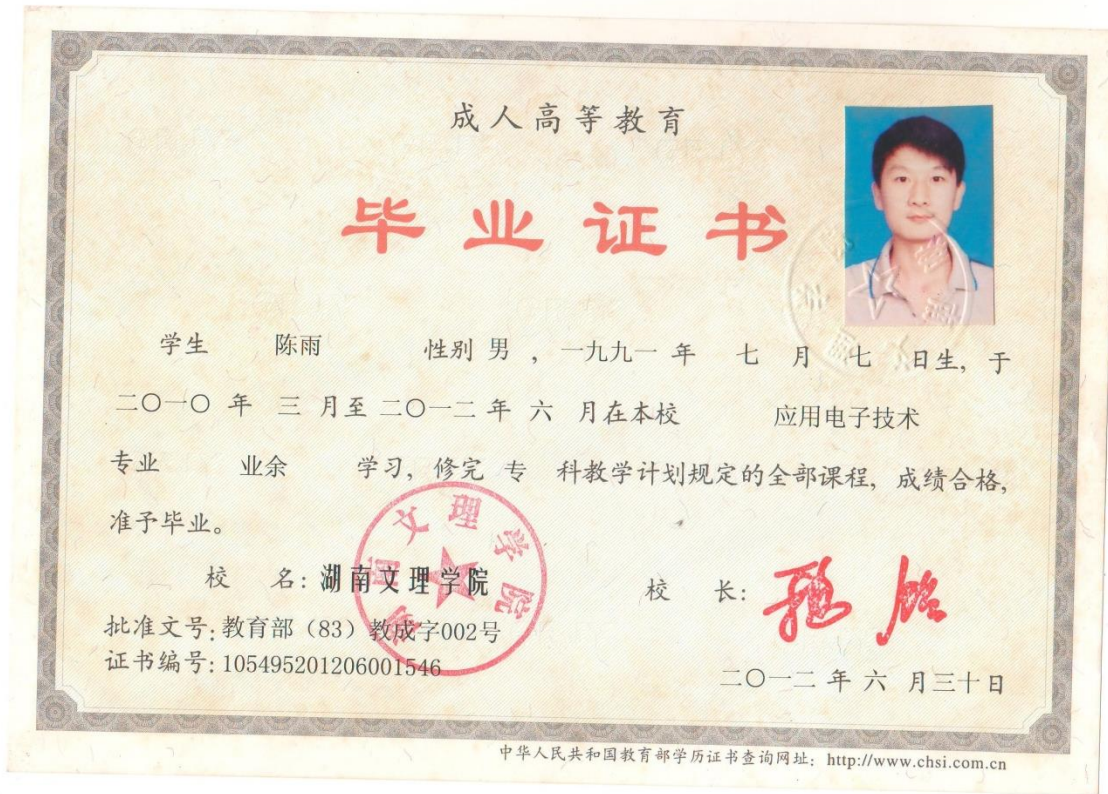 成人高等教育
毕业证书
学生 陈雨 性别 男 ，一九九一 年 七 月 七 日生，于
二〇一〇 年 三 月至 二〇一二 年 六 月在本校 应用电子技术
专业 业余 学习，修完 专 科教学计划规定的全部课程，成绩合格，
准予毕业。
湖南文理学院
校 名：湖南文理学院
校 长：
批准文号：教育部（83）教成字002号
证书编号：105495201206001546
二〇一二 年 六 月三十日
中华人民共和国教育部学历证书查询网址：http://www.chsi.com.cn